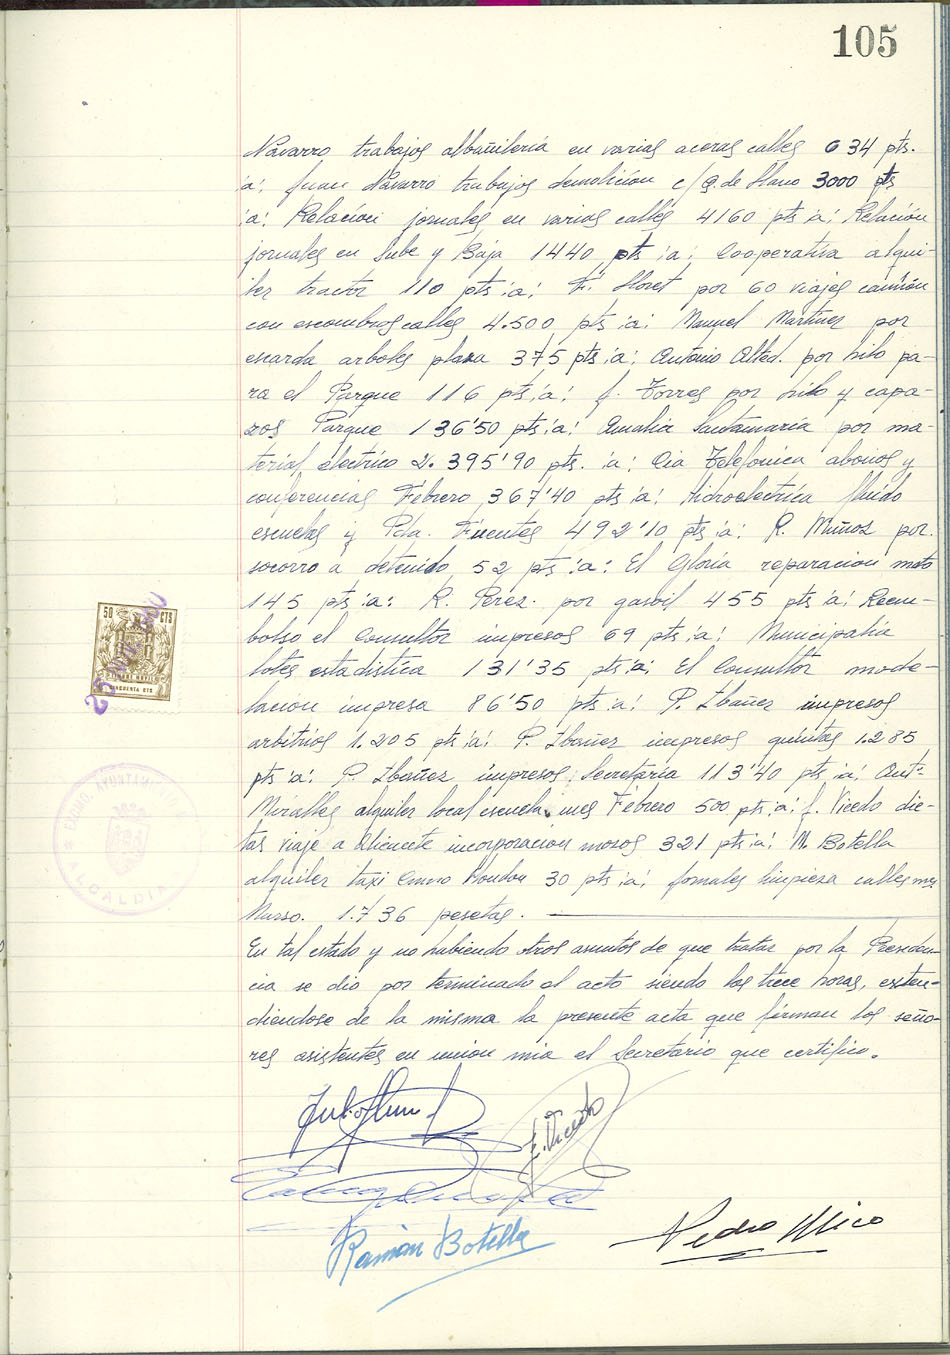 105
Navarro trabajos albañilería en varias aceras calles 634 pts.
:a: Juan Navarro trabajos demolicion c/ Q. de Llano 3000 pts
:a: Relación jornales en varias calles 4160 pts :a: Relación
jornales en Sube y Baja 1440 pts :a: Cooperativa alqui-
ler tractor 110 pts :a: F. Lloret por 60 viajes camión
con escombros calles 4.500 pts :a: Manuel Martinez por
escarda arboles plaza 375 pts :a: Antonio Alted. por hilo pa-
ra el Parque 116 pts :a: J. Torres por hilo y capa-
zos Parque 136'50 pts :a: Amalia Santamaría por ma-
terial électrico 2.395'90 pts. :a: Cia Telefonica abonos y
conferencias Febrero 367'40 pts :a: Hidroelectrica fluido
escuelas y Pda. Fuentes 492'10 pts :a: R. Muñoz por
socorro a detenido 52 pts :a: El Gloria reparacion moto
145 pts :a: R. Perez. por gasoil 455 pts :a: Reem-
bolso el Consultor impresos 69 pts :a: Municipalia
lotes estadistica 131'35 pts :a: El Consultor mode-
lacion impresa 86'50 pts :a: P. Ibañez impresos
arbitrios 1.205 pts :a: P. Ibañez impresos quintas 1.285
pts :a: P. Ibañez impresos Secretaria 113'40 pts :a: Antº
Miralles alquiler local escuela mes Febrero 500 pts :a: J. Vicedo die-
tas viaje a Alicante incorporacion mozos 321 pts :a: M. Botella
alquiler taxi 30 pts :a: jornales limpieza calles mes
Marzo. 1.736 pesetas.
En tal estado y no habiendo otros asuntos de que tratar por la Presiden-
cia se dio por terminado el acto siendo las trece horas, exten-
diendose de la misma la presente acta que firman los seño-
res asistentes en union mia el Secretario que certifico.
50 CTS
CINCUENTA CTS
EXCMO. AYUNTAMIENTO
ALCALDIA
E. Vicedo
Ramón Botella
Pedro Mico